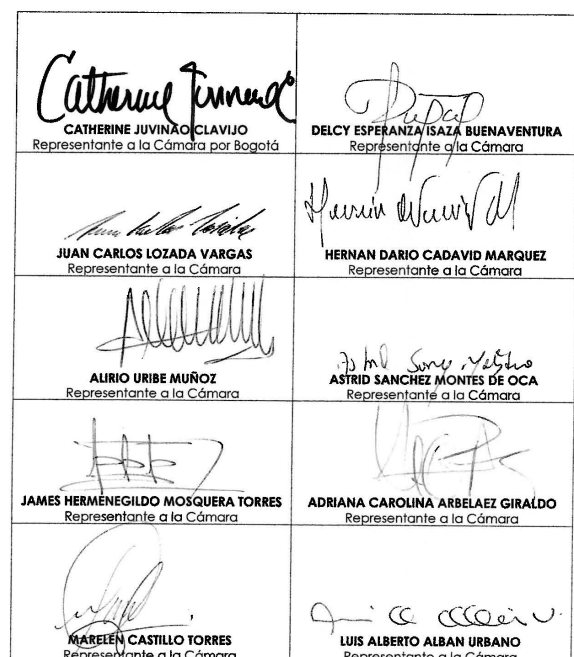 Catherine Juvinao
CATHERINE JUVINAO CLAVIJO
Representante a la Cámara por Bogotá
DELCY ESPERANZA ISAZA BUENAVENTURA
Representante a la Cámara
JUAN CARLOS LOZADA VARGAS
Representante a la Cámara
HERNAN DARIO CADAVID MARQUEZ
Representante a la Cámara
ALIRIO URIBE MUÑOZ
Representante a la Cámara
ASTRID SANCHEZ MONTES DE OCA
Representante a la Cámara
JAMES HERMENEGILDO MOSQUERA TORRES
Representante a la Cámara
ADRIANA CAROLINA ARBELAEZ GIRALDO
Representante a la Cámara
MARELEN CASTILLO TORRES
Representante a la Cámara
LUIS ALBERTO ALBAN URBANO
Representante a la Cámara